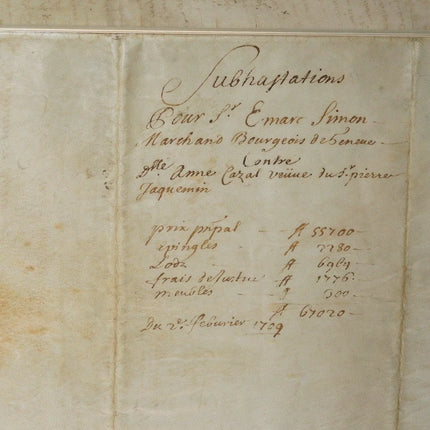 Subhastations
Pour Sr. Emarc Simon
Marchand Bourgeois de Geneve
Contre
Dlle Anne Cazal veüve du Sr. pierre
Jaquemin
prix prpal - ff 55700 -
epingles - ff 2280 -
Lodz - ff
frais de Justice - ff 1776
meubles - ff 300 -
ff 67020 -
Du febvrier 1709